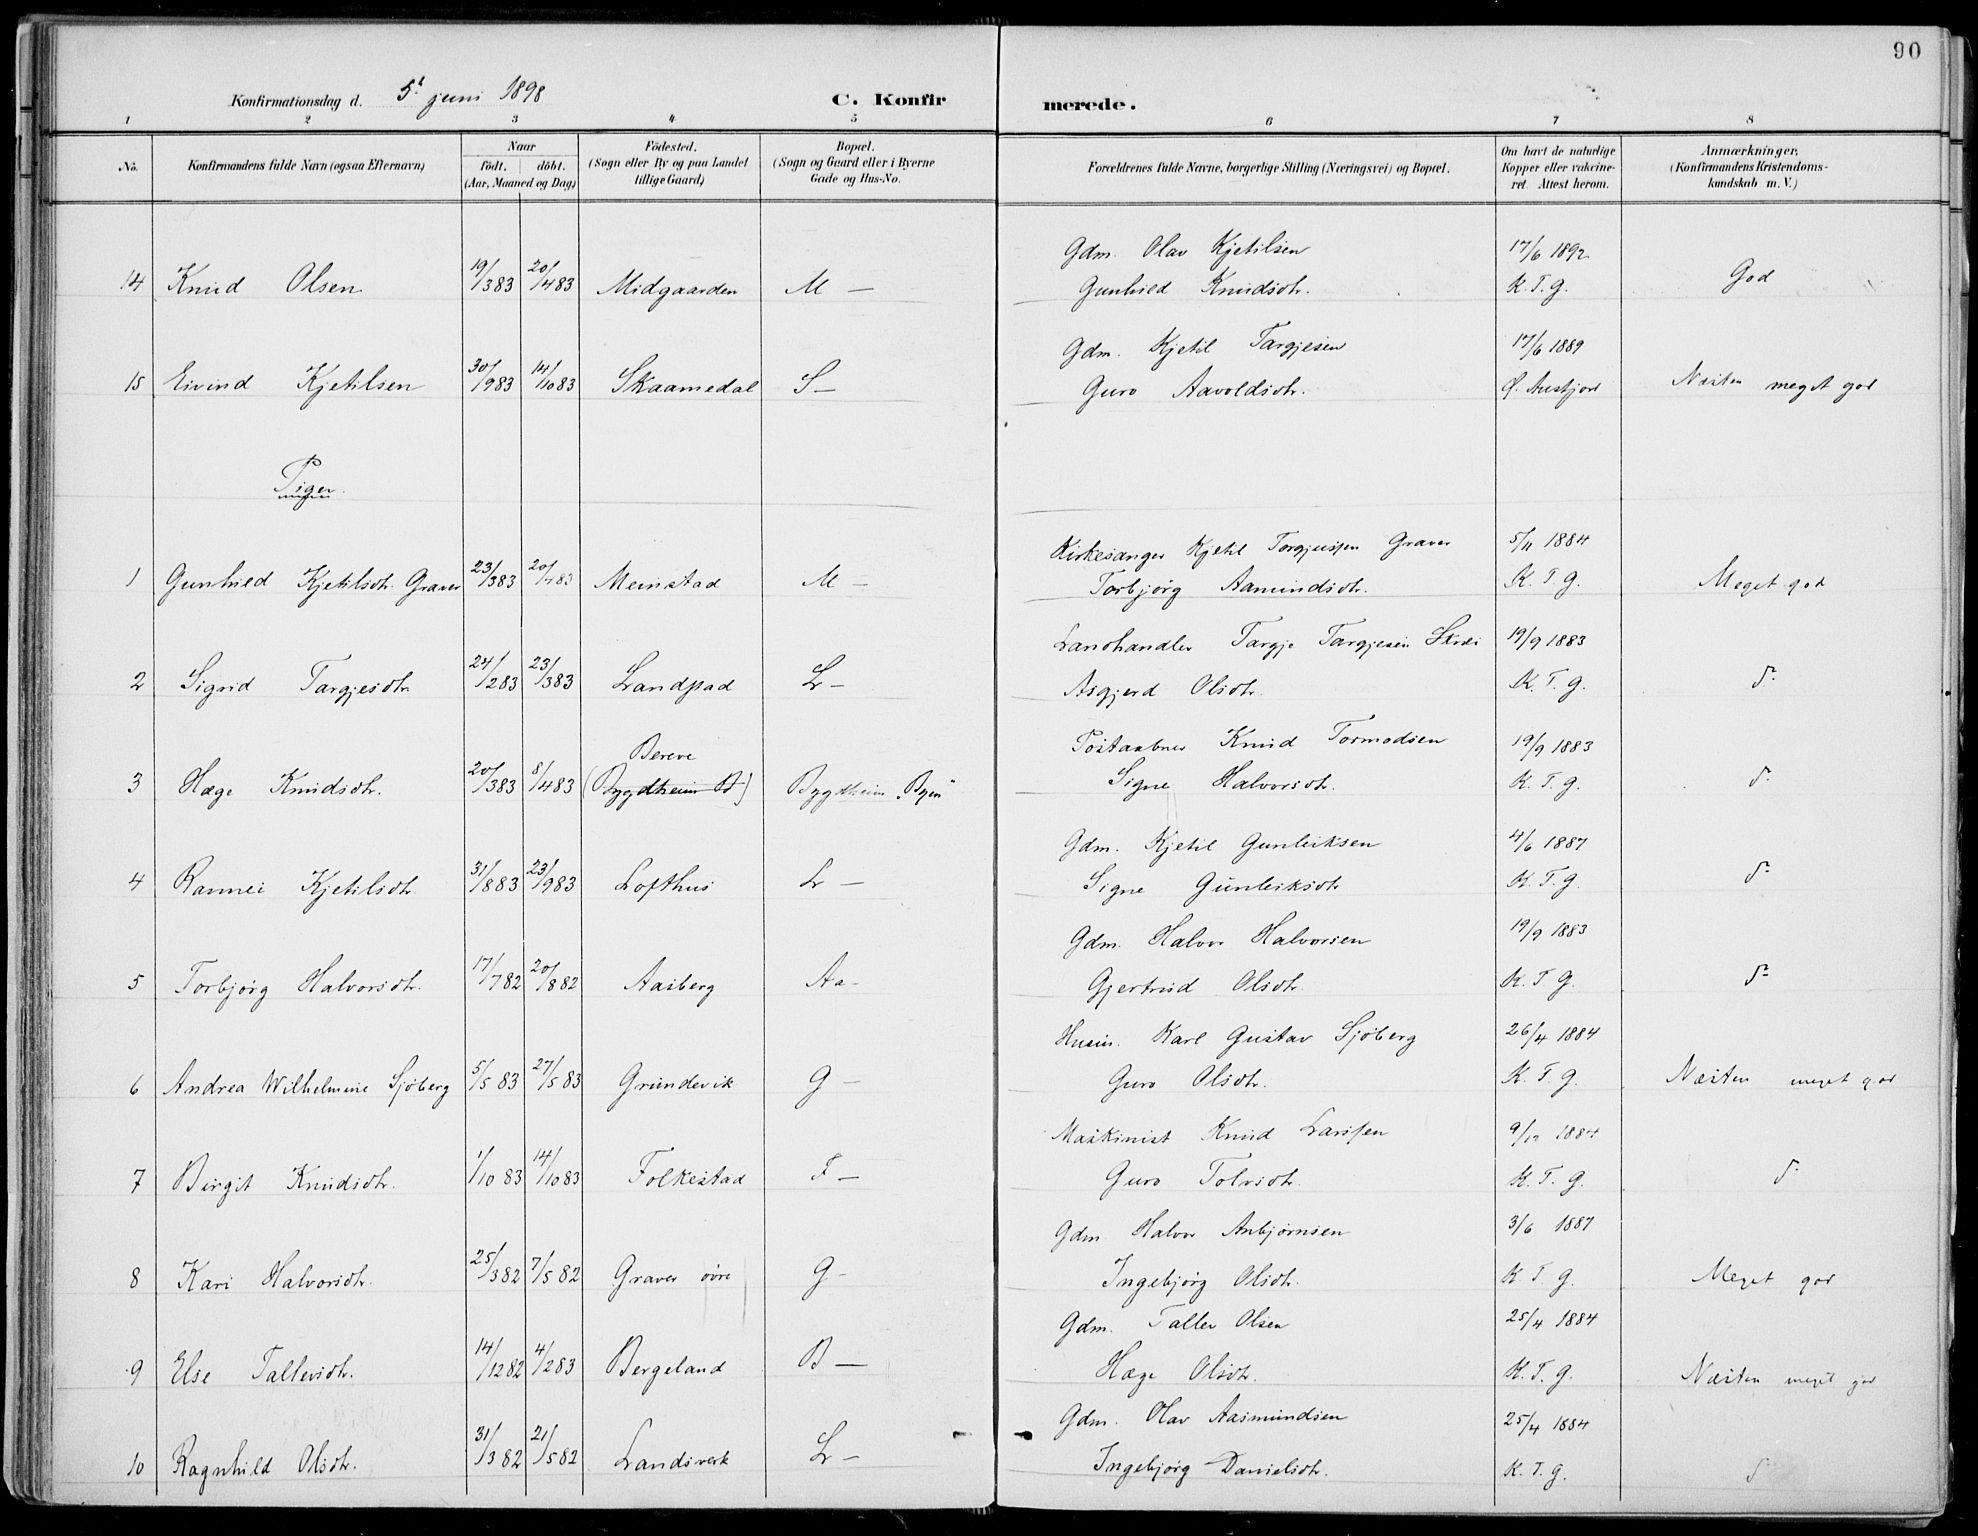 90
Konfirmationsdag d. 5t juni 1898
C. Konfirmerede.
1 2 3 4 5 6 7 8
No.
Konfirmandens fulde Navn (ogsaa Efternavn)
Naar
födt. döbt.
(Aar, Maaned og Dag)
Födested.
(Sogn eller By og paa Landet
tillige Gaard)
Bopæl.
(Sogn og Gaard eller i Byerne
Gade og Hus-No.
Forældrenes fulde Navne, borgerlige Stilling (Næringsvei) og Bopæl.
Om havt de naturlige
Kopper eller vakcine-
ret. Attest herom.
Anmærkninger.
(Konfirmandens Kristendoms-
kundskab m. V.)
Gdm. Olav Kjetilsen 17/6 1892
14 Knud Olsen 19/3 83 20/4 83 Midgaarden M — Gunhild Knudsdtr. K. T. G. God
Gdm. Kjetil Targjesen 17/6 1889
15 Eivind Kjetilsen 30/9 83 14/10 83 Skaamedal S — Guro Aavoldsdtr. Ø. Austjord Næsten meget god
Piger.
Kirkesanger Kjetil Torgjussen Graver 5/11 1884
1 Gunhild Kjetilsdtr. Graver 23/3 83 20/4 83 Meinstad M — Torbjørg Aamundsdtr. K. T. G. Meget god
Landhandler Targje Targjesen Skrei 19/9 1883
2 Sigrid Targjesdtr 24/2 83 23/3 83 Landstad L — Asgjerd Olsdtr. K. T. G. d:
Bereve Postaabner Knud Tormodsen 19/9 1883
3 Hæge Knudsdtr. 20/3 83 8/4 83 (Bygdheim B) Bygdheim "Byen" Signe Halvorsdtr. K. T. G. d:
Gdm. Kjetil Gunleiksen 4/6 1887
4 Rannei Kjetilsdtr. 31/8 83 23/9 83 Lofthus L — Signe Gunleiksdtr K. T. G. d:
Gdm. Halvor Halvorsen 19/9 1883
5 Torbjørg Halvorsdtr. 17/7 82 20/8 82 Aasberg Aa — Gjertrud Olsdtr. K. T. G. d:
Husm. Karl Gustav Sjöberg 26/4 1884
6 Andrea Wilhelmine Sjöberg 5/5 83 27/5 83 Grundevik G — Guro Olsdtr. K. T. G. Næsten meget god
Maskinist Knud Larssen 9/12 1884
7 Birgit Knudsdtr. 1/10 83 14/10 83 Folkestad F — Guro Tolvsdtr. K. T. G. d:
Gdm. Halvor Anbjørnsen 3/6 1887
8 Kari Halvorsdtr. 25/3 82 7/5 82 Graver øvre G — Ingebjørg Olsdtr. K T G. Meget god
Gdm. Tallev Olsen 25/4 1884
9 Else Tallevsdtr. 14/12 82 4/2 83 Bergeland B — Hæge Olsdtr. K. T. G. Næsten meget god
Gdm. Olav Aasmundsen 25/4 1884
10 Ragnhild Olsdtr. 31/3 82 21/5 82 Landsverk L — Ingebjørg Danielsdtr. K. T. G. d: